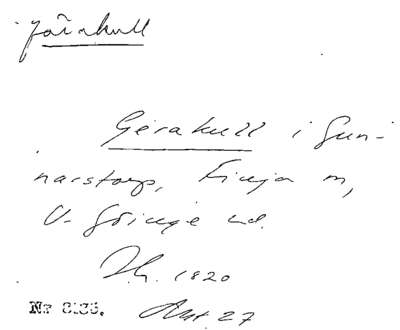 Järakull
Gerakull i Gun-
narstorp, Finja sn,
V. Göinge hd.
Jh. 1820
Nr 8136. Akt 27